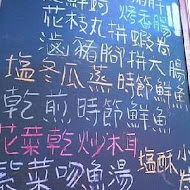 烤香腸
花枝丸拼蝦卷
滷豬腳拼大腸
塩冬瓜蒸時節鮮魚
乾煎時節鮮魚
花菜乾炒木耳
塩酥小
紫菜吻魚湯